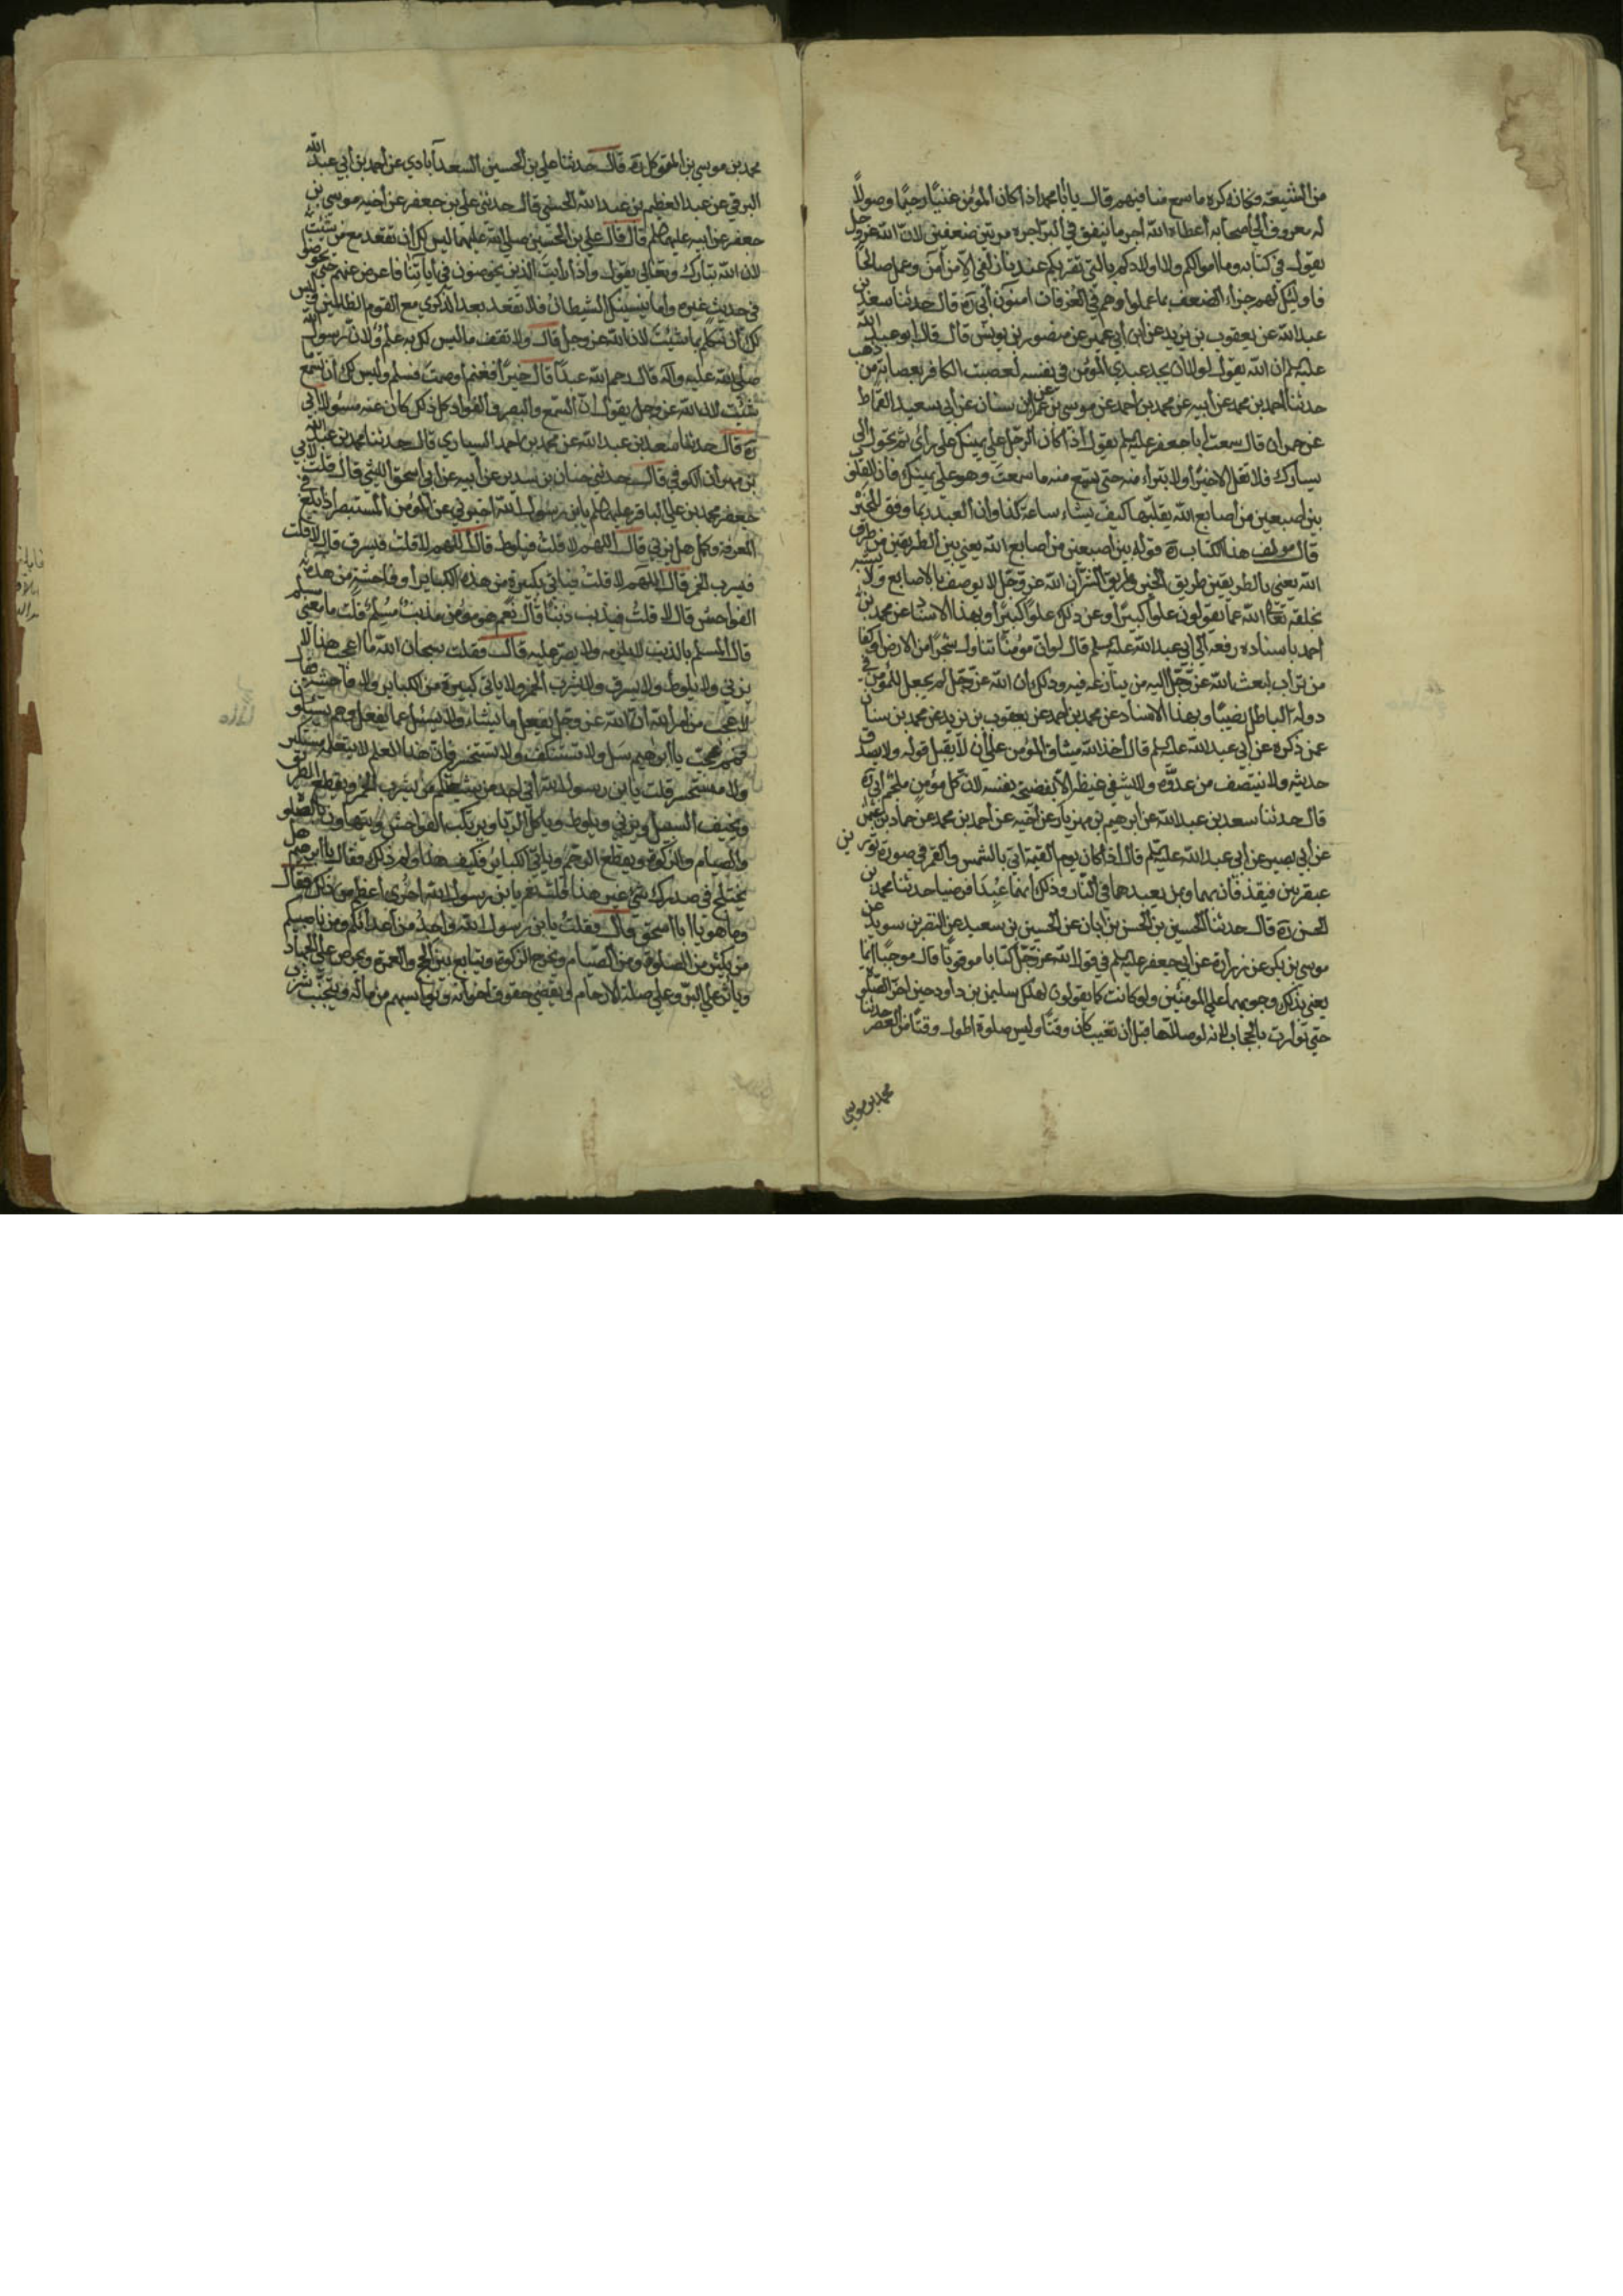 من الشيعة فكانه كره ما سمع منا فيهم قال يا أبا محمد اذا كان المؤمن غنيا رحيما وصولا
له معروف الى اصحابه أعطاه الله أجر ما ينفق في البر أجره مرتين ضعفين لان الله عز وجل
يقول في كتابه وما اموالكم ولا اولادكم بالتي تقربكم عندنا زلفى الا من آمن وعمل صالحا
فاولئك لهم جزاء الضعف بما عملوا وهم في الغرفات امنون أبي ره قال حدثنا سعد بن
عبد الله عن يعقوب بن يزيد عن ابن أبي عمير عن منصور بن يونس قال قال ابو عبد الله
عليه لم ان الله يقول لولا ان يجد عبدي المؤمن في نفسه لعصبت الكافر بعصابة من ذهب
حدثنا أحمد بن محمد عن أبيه عن محمد بن احمد عن موسى بن عمر عن ابن سنان عن أبي سعيد القماط
عن حمران قال سمعت أبا جعفر عليه لم يقول اذا كان الرجل على يمينك على رأي ثم تحول الى
يسارك فلا تقل الا خيرا ولا تبرأ منه حتى تسمع منه ما سمعت وهو على يمينك فان القلوب
بين اصبعين من اصابع الله يقلبها كيف يشاء ساعة كذا وان العبد ربما وفق للخير
قال مولف هذا الكتاب ره قوله بين اصبعين من اصابع الله يعني بين الطريقين من طرق
الله يعني بالطريقين طريق الخير وطريق الشر ان الله عز وجل لا يوصف بالاصابع ولا يشبه
بخلقه تعالى الله عما يقولون علوا كبيرا وعن ذلك علوا كبيرا وبهذا الاسناد عن محمد بن
احمد باسناده رفعه الى ابي عبد الله عليه لم قال لو ان مؤمنا تناول شجرا من الارض او كفا
من تراب لبعث الله عز وجل اليه من ينازعه فيه وذلك ان الله عز وجل لم يجعل للمؤمن في
دولة الباطل نصيبا وبهذا الاسناد عن محمد بن احمد عن يعقوب بن يزيد عن محمد بن سنان
عمن ذكره عن أبي عبد الله عليه لم قال أخذ الله ميثاق المؤمن على أن لا يقبل قوله ولا يصدق
حديثه ولا ينتصف من عدوه ولا يشفى غيظه الا بفضيحة نفسه لان كل مؤمن ملجم ابي ره
قال حدثنا سعد بن عبد الله عن ابرهيم بن مهزيار عن أخيه عن أحمد بن محمد عن حماد بن عثمان
عن أبي بصير عن أبي عبد الله عليه لم قال اذا كان يوم القيمة اتي بالشمس والقمر في صورة ثورين
عبقريين فيقذفان بهما وبمن يعبدهما في النار وذلك انهما عبدا فرضيا حدثنا محمد بن
الحسن ره قال حدثنا الحسين بن الحسن بن أبان عن الحسين بن سعيد عن النضر بن سويد عن
موسى بن بكر عن زرارة عن أبي جعفر عليه لم في قول الله عز وجل كتابا موقوتا قال موجبا انما
يعني بذلك وجوبهما على المؤمنين ولو كانت كما يقولون لهلك سليمن بن داود حين اخر الصلوة
حتى توارت بالحجاب لانه لو صلاها قبل أن تغيب كان وقتا وليس صلوة اطول وقتا من العصر حدثنا
محمد بن موسى
محمد بن موسى بن المتوكل ره قال حدثنا علي بن الحسين السعدآبادي عن أحمد بن أبي عبد الله
البرقي عن عبد العظيم بن عبد الله الحسني قال حدثني علي بن جعفر عن أخيه موسى بن
جعفر عن أبيه عليهما لم قال قال علي بن الحسين صلى الله عليهما ليس لك أن تقعد مع من شئت
لان الله تبارك وتعالى يقول واذا رأيت الذين يخوضون في أياتنا فاعرض عنهم حتى يخوضوا
في حديث غيره واما ينسينك الشيطان فلا تقعد بعد الذكرى مع القوم الظالمين وليس
لك أن تتكلم بما شئت لان الله عز وجل قال ولا تقف ما ليس لك به علم ولان رسول الله
صلى الله عليه وآله قال رحم الله عبدا قال خيرا فغنم او صمت فسلم وليس لك أن تسمع ما
شئت لان الله عز وجل يقول ان السمع والبصر والفؤاد كل ذلك كان عنه مسؤلا أبي
ره قال حدثنا سعد بن عبد الله عن محمد بن احمد السياري قال حدثنا محمد بن عبد الله
بن مهران الكوفي قال حدثني حنان بن سدير عن أبيه عن أبي اسحق الليثي قال قلت لابي
جعفر محمد بن علي الباقر عليهما لم يا بن رسول الله اخبرني عن المؤمن المستبصر اذا بلغ في
المعرفة وكمل هل يزني قال اللهم لا قلت فيلوط قال اللهم لا قلت فيسرق قال لا قلت
فيشرب الخمر قال اللهم لا قلت فيأتي بكبيرة من هذه الكباير أو فاحشة من هذه
الفواحش قال لا قلت فيذنب ذنبا قال نعم هو مؤمن مذنب مسلم قلت ما معنى مسلم
قال المسلم بالذنب لا يلزمه ولا يصر عليه قال فقلت سبحان الله ما اعجب هذا لا
يزني ولا يلوط ولا يسرق ولا يشرب الخمر ولا ياتي كبيرة من الكباير ولا فاحشة فقال
لا عجب من امر الله ان الله عز وجل يفعل ما يشاء ولا يسئل عما يفعل وهم يسئلون
فمم عجبت يا ابرهيم سل ولا تستنكف ولا تستحسر فان هذا العلم لا يتعلمه مستكبر
ولا مستحسر قلت يا ابن رسول الله اني اجد من شيعتكم من يشرب الخمر ويقطع الطريق
ويخيف السبيل ويزني ويلوط وياكل الربا ويرتكب الفواحش ويتهاون بالصلوة
والصيام والزكوة ويقطع الرحم وياتي الكبائر فكيف هذا ولم ذلك فقال يا ابرهيم هل
يختلج في صدرك شيء غير هذا قلت نعم يا بن رسول الله اخرى أعظم من ذلك فقال
وما هو يا ابا اسحق قال فقلت يا بن رسول الله واجد من أعدائكم ومن ناصبيكم
من يكثر من الصلوة ومن الصيام ويخرج الزكوة ويتابع بين الحج والعمرة ويحرص على الجهاد
ويأثر على البر وعلى صلة الارحام ويقضي حقوق اخوانه ويواسيهم من ماله ويتجنب شرب